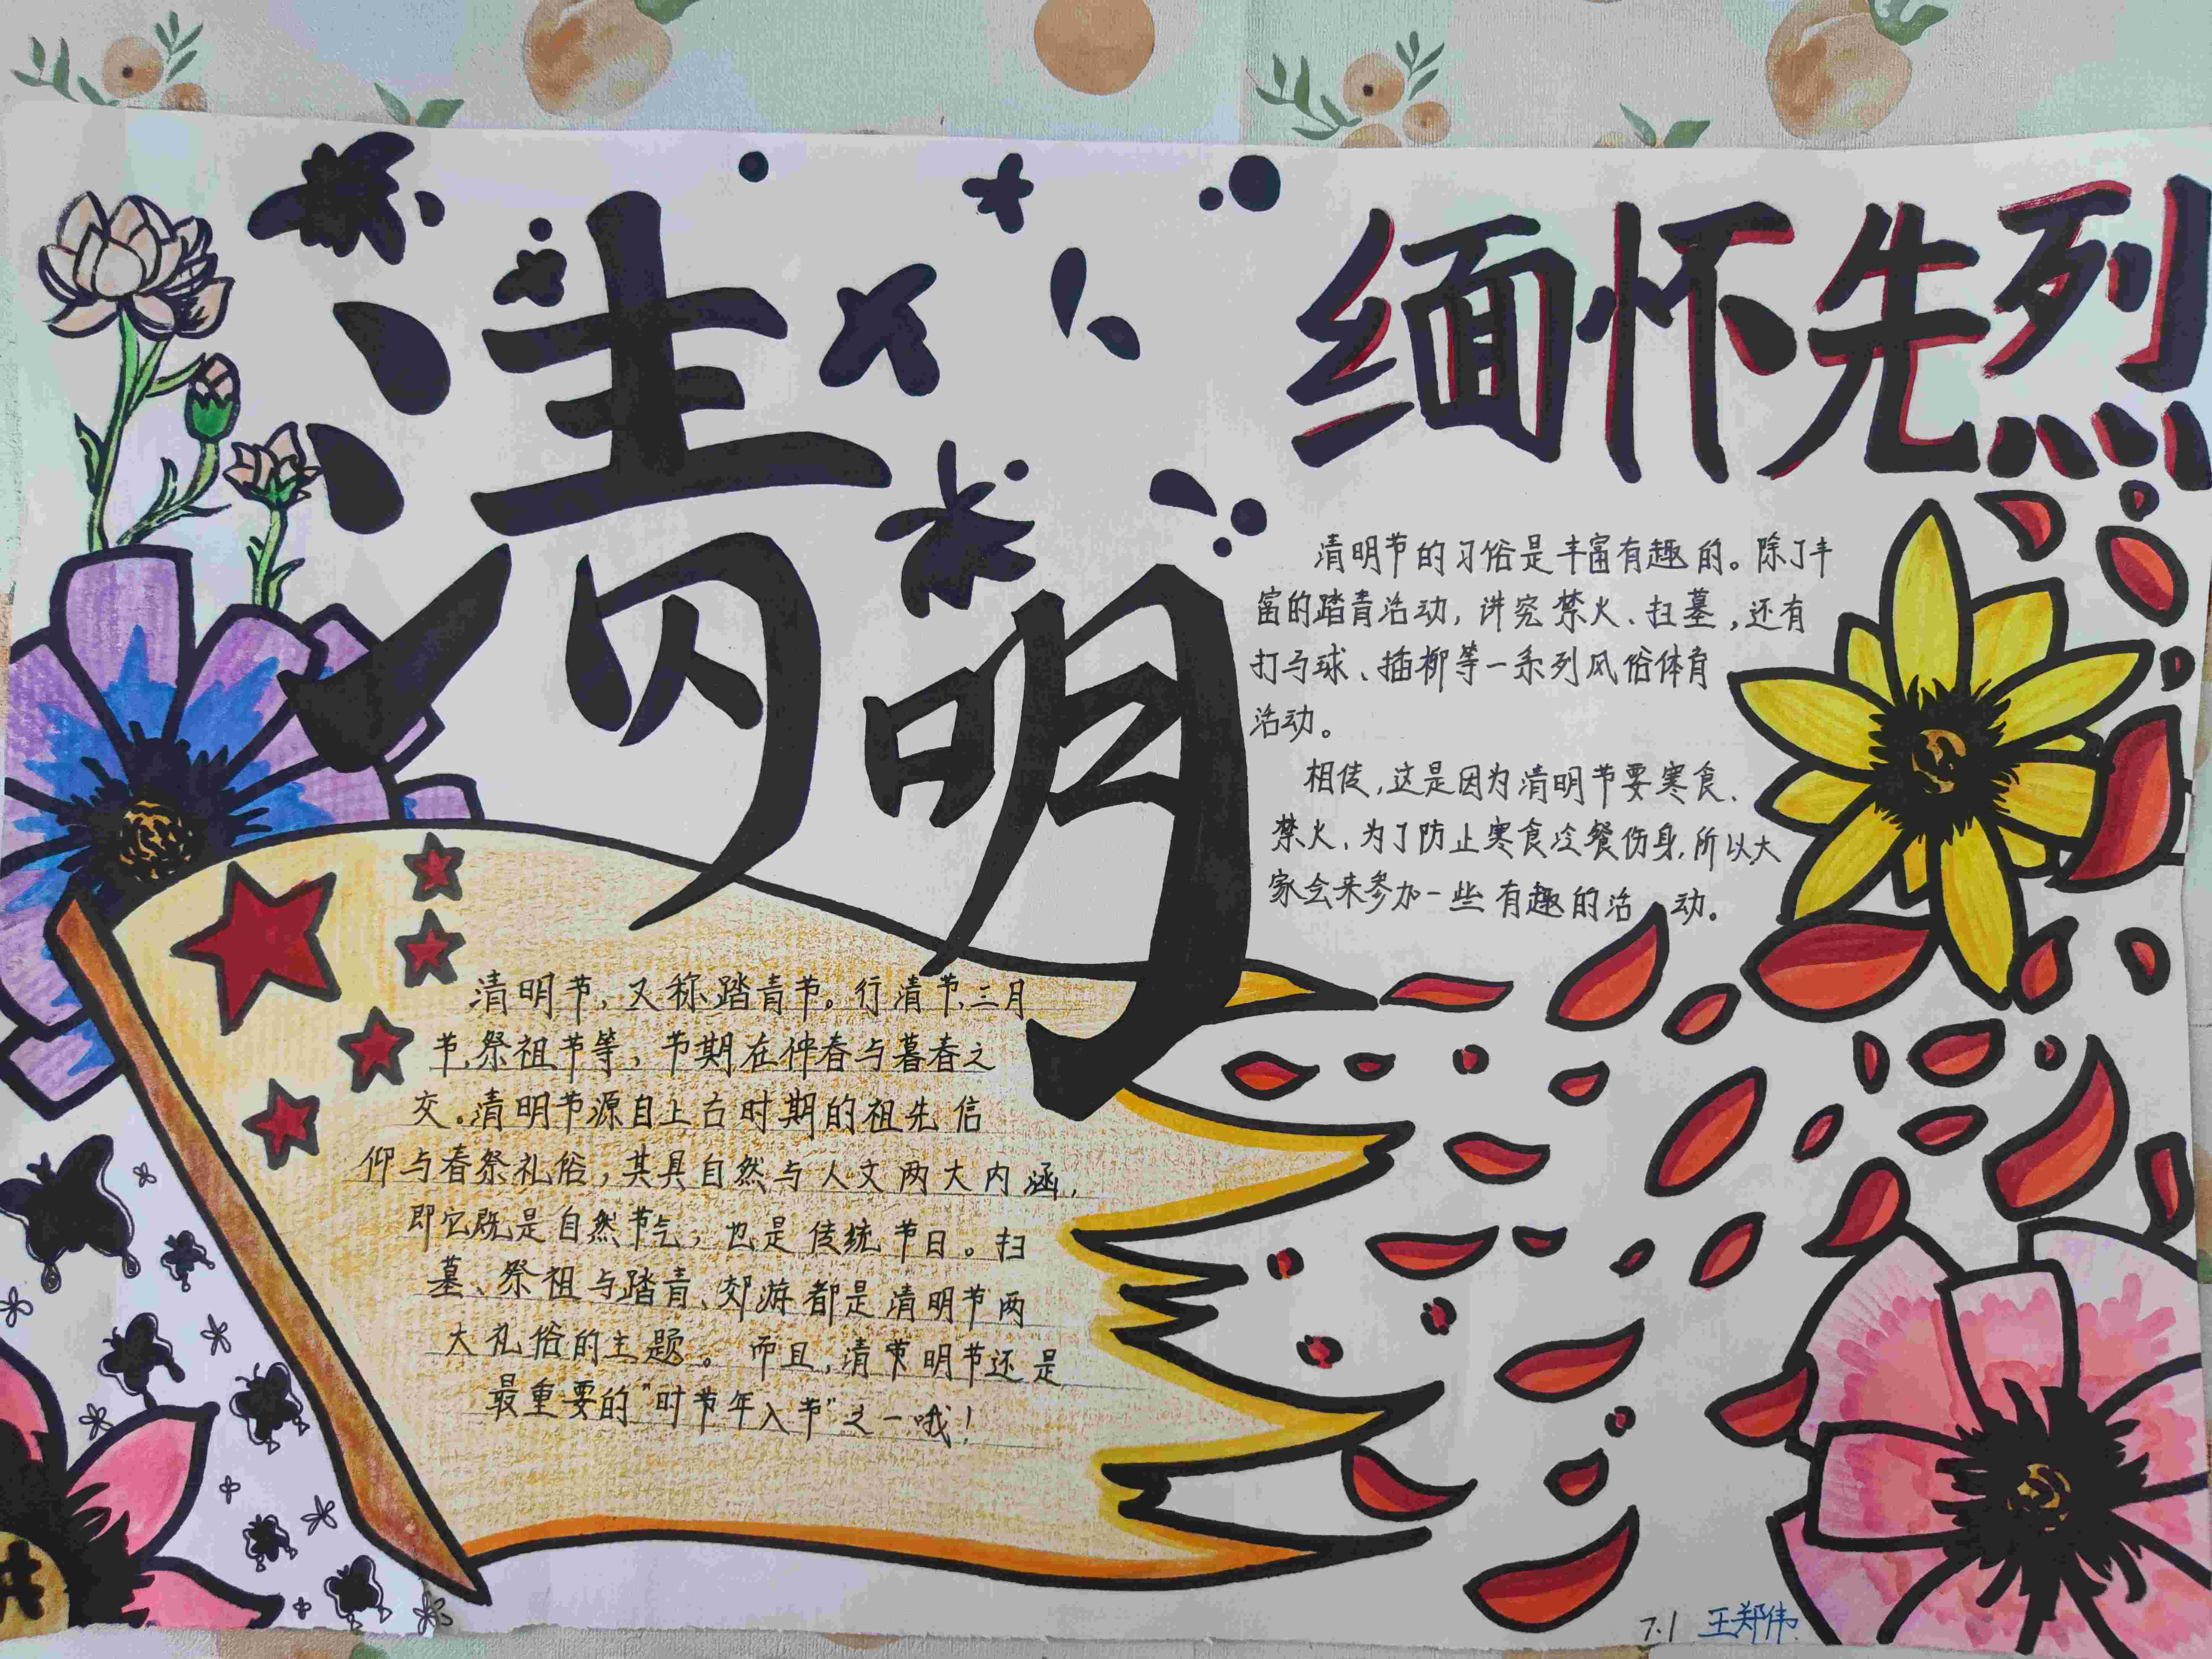 清明
缅怀先烈
清明节的习俗是丰富有趣的。除了丰
富的踏青活动，讲究禁火、扫墓，还有
打马球、插柳等一系列风俗体育
活动。
相传，这是因为清明节要寒食、
禁火、为了防止寒食冷餐伤身，所以大
家会来参加一些有趣的活动。
清明节，又称踏青节。行清节、三月
节、祭祖节等，节期在仲春与暮春之
交。清明节源自上古时期的祖先信
仰与春祭礼俗，其具自然与人文两大内涵，
即它既是自然节气，也是传统节日。扫
墓、祭祖与踏青、郊游都是清明节两
大礼俗的主题。而且，清明节还是
最重要的“时节年入节”之一哦！
7.1 王郑伟